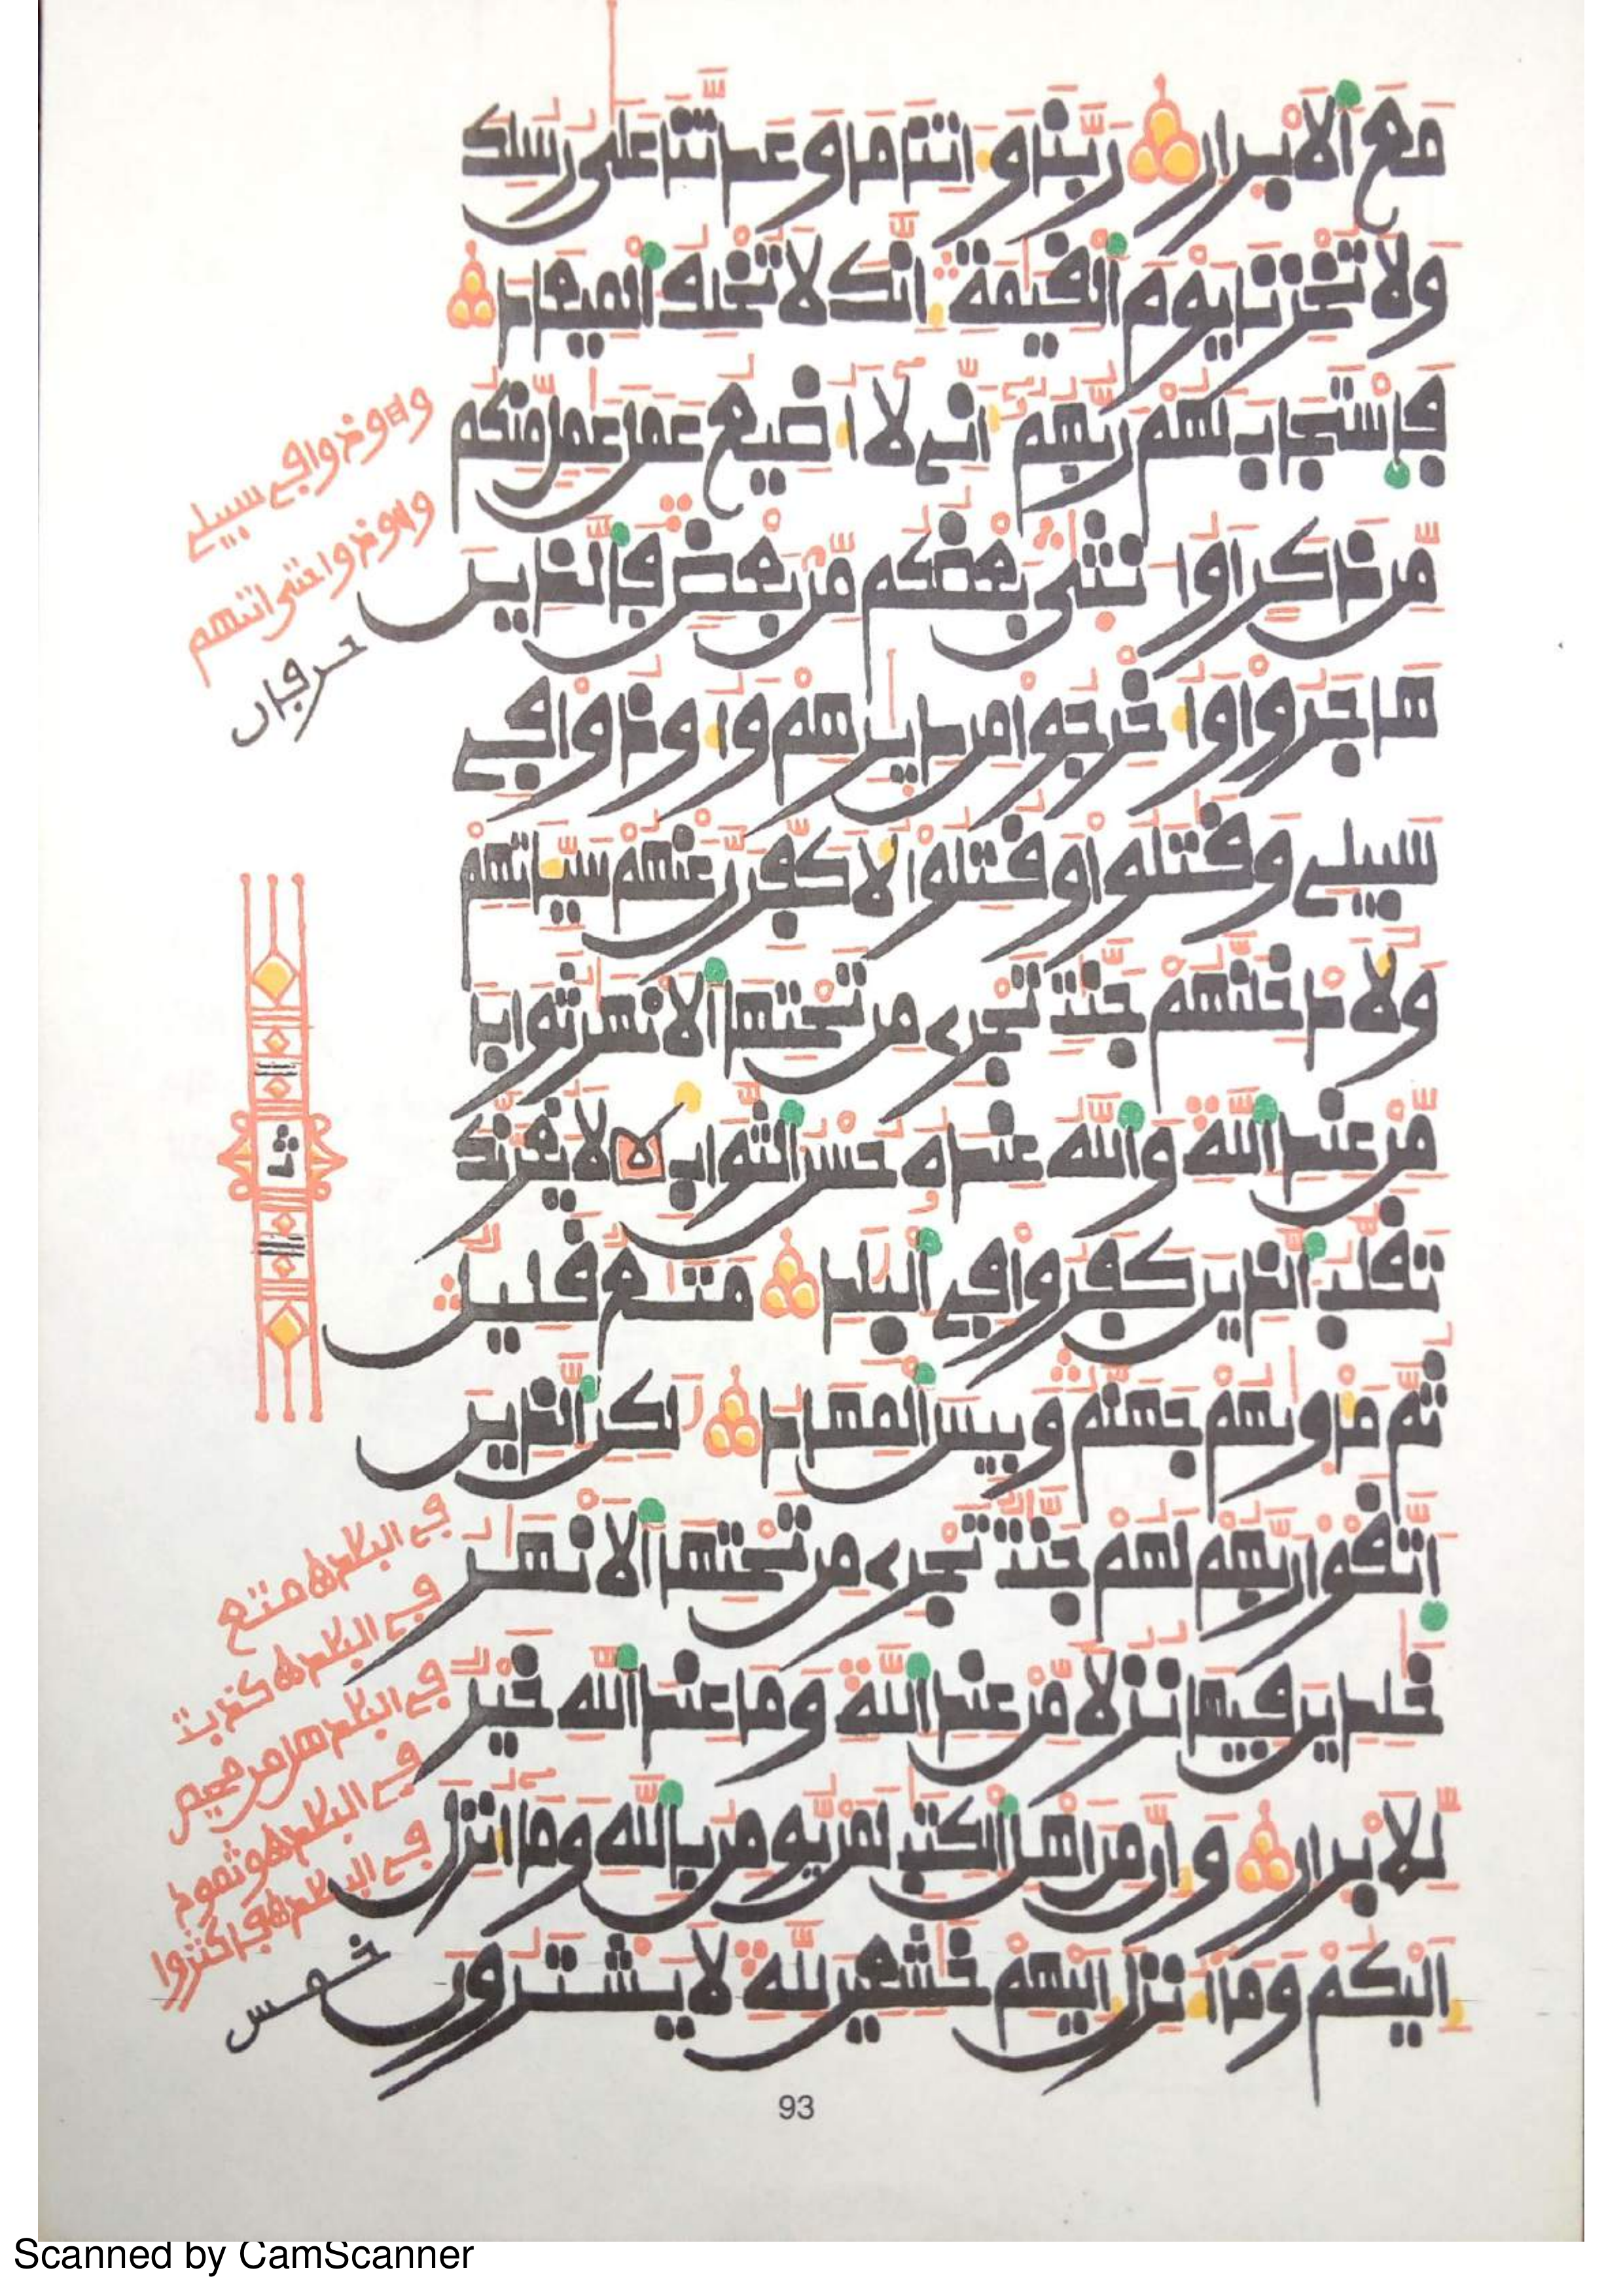 مع الابرار ربنا واتنا ما وعدتنا على رسلك
ولا تخزنا يوم القيمة انك لا تخلف الميعاد
فاستجاب لهم ربهم اني لا اضيع عمل عمل منكم
من ذكر او انثى بعضكم من بعض فالذين
هاجروا واخرجوا من ديرهم واوذوا في
سبيلي وقتلوا وقتلوا لاكفرن عنهم سياتهم
ولادخلنهم جنت تجري من تحتها الانهر ثوابا
من عند الله والله عنده حسن الثواب لا يغرنك
تقلب الذين كفروا في البلد متع قليل
ثم ماويهم جهنم وبيس المهاد لكن الذين
اتقوا ربهم لهم جنت تجري من تحتها الانهر
خلدين فيها نزلا من عند الله وما عند الله خير
للابرار وان من اهل الكتب لمن يومن بالله وما انزل
اليكم وما انزل اليهم خشعين لله لا يشترون
واوذوا في سبيلي
حرفان
ثمن
في البلد متع
خمس
93
Scanned by CamScanner